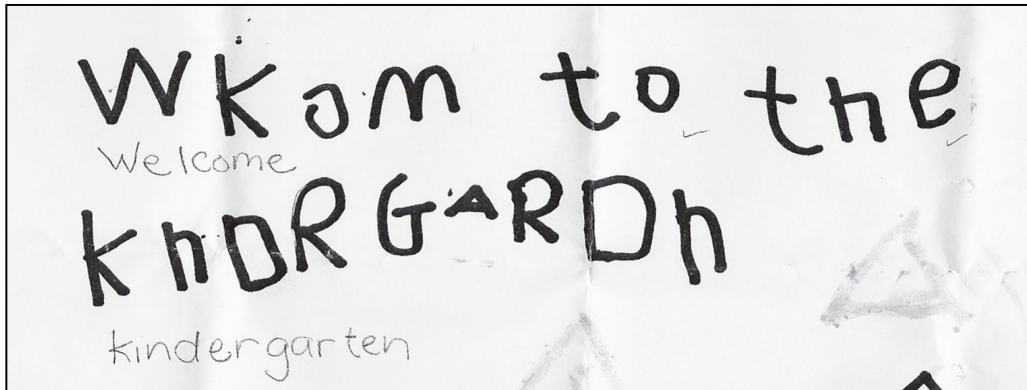 Wkom to the
Welcome
knDRGARDn
kindergarten